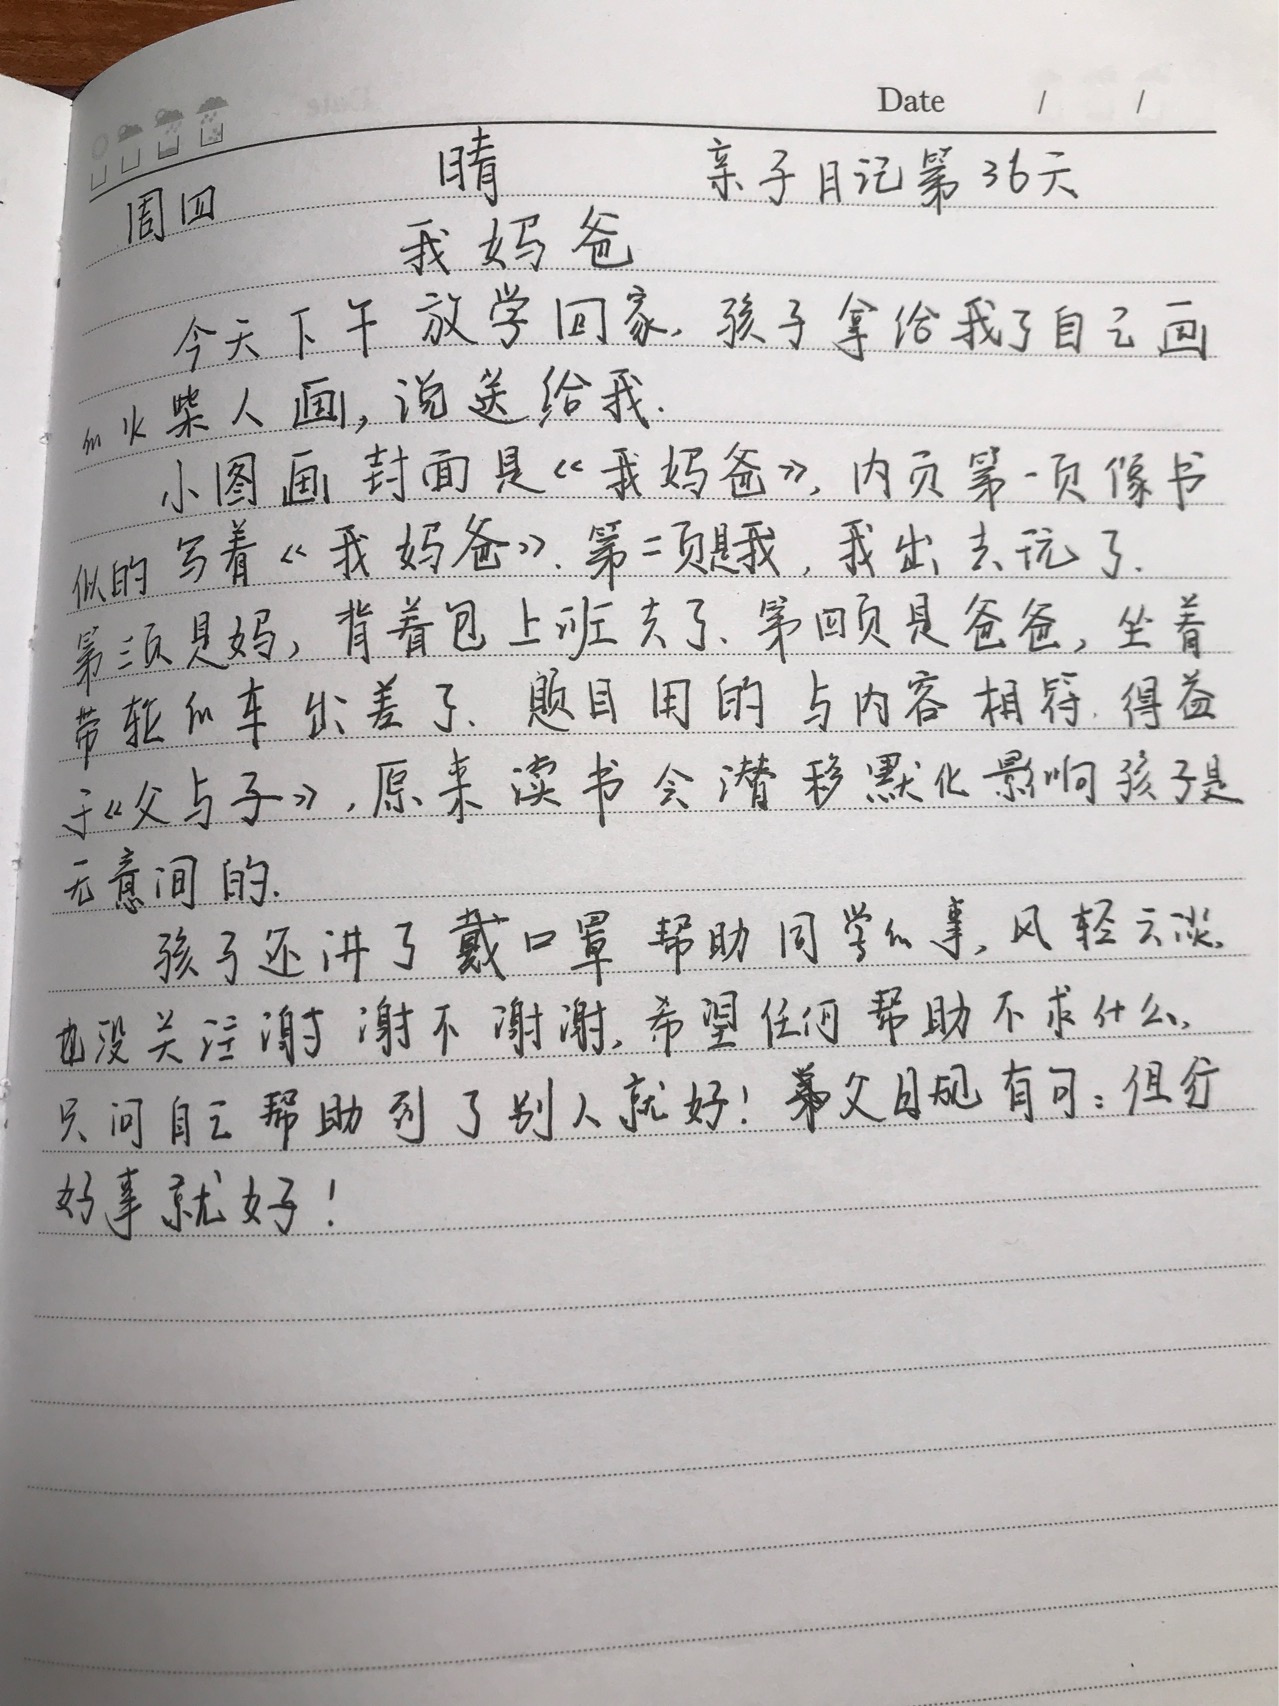 Date / /
周四 晴 亲子日记第36天
我妈爸
今天下午放学回家,孩子拿给我了自己画
的火柴人画,说送给我.
小图画封面是《我妈爸》,内页第一页像书
似的写着《我妈爸》.第二页是我,我出去玩了.
第三页是妈,背着包上班去了.第四页是爸爸,坐着
带轮的车出差了.题目用的与内容相符.得益
于《父与子》,原来读书会潜移默化影响孩子是
无意间的.
孩子还讲了戴口罩帮助同学的事,风轻云淡.
也没关注谢谢不谢谢,希望任何帮助不求什么,
只问自己帮助到了别人就好!弟父目规有可:但行
好事就好!